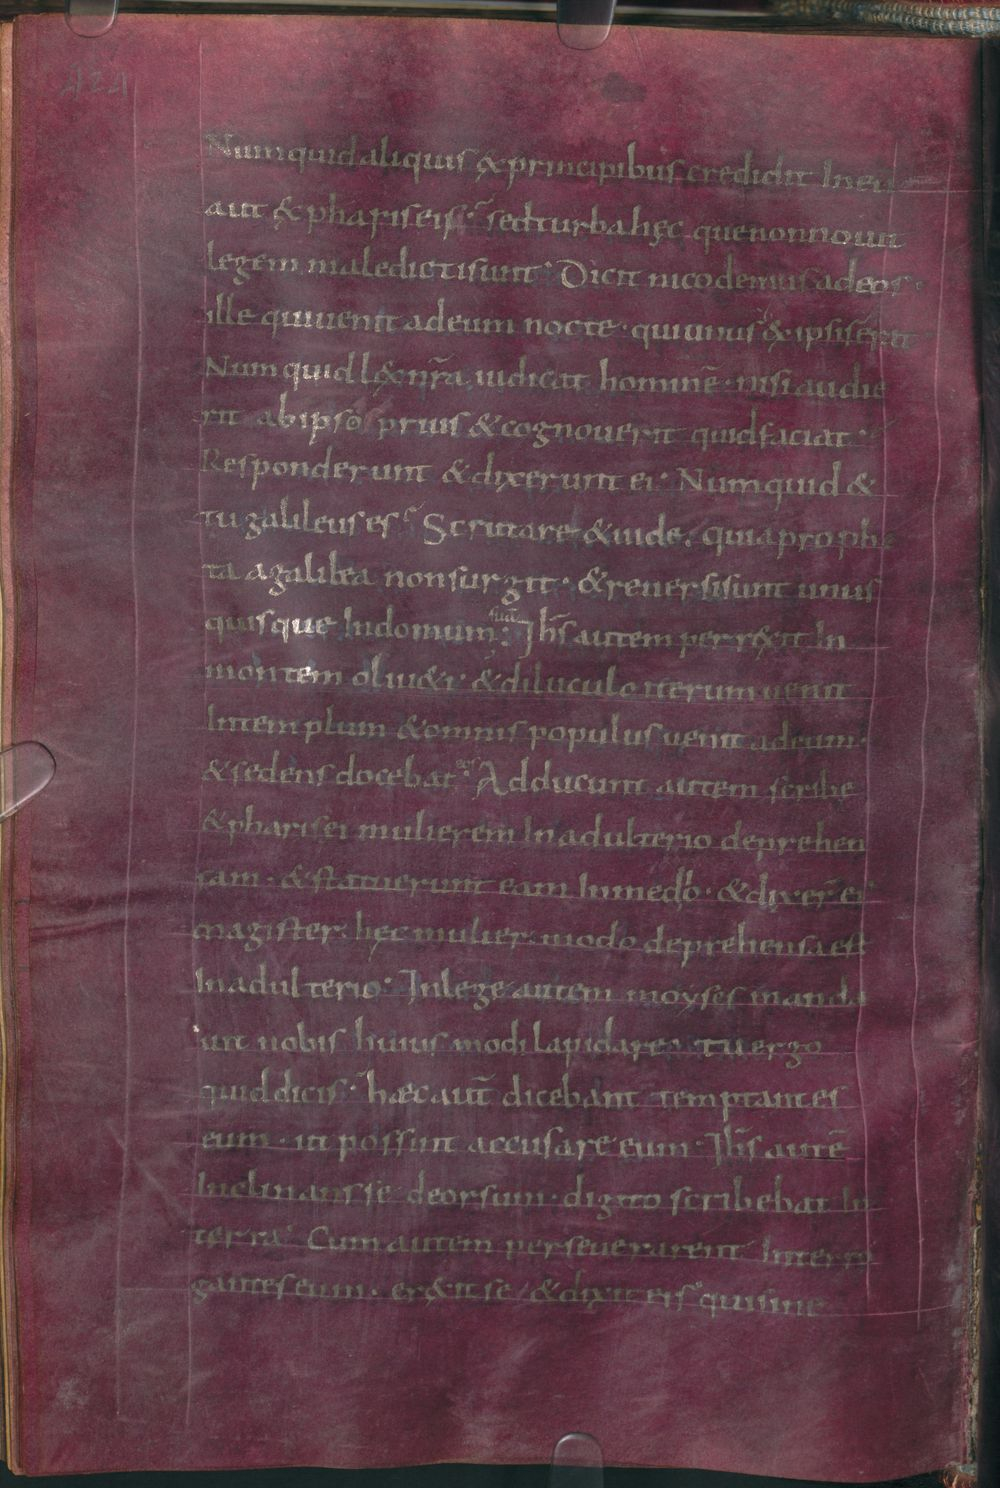 424
Numquid aliquis & principibus credidit In eū
aut & phariseis? sed turba hęc que non nouit
legem maledicti sunt. Dicit nicodemus ad eos.
ille qui uenit ad eum nocte. qui unus & ipsis erat
Numquid l&x nr̄a iudicat hominē. nisi audie
rit ab ipso prius & cognouerit quid faciat.
Responderunt & dixerunt ei. Numquid &
tu galileus es? Scrutare & uide. quia prophe
ta a galilea non surgit. & reuersi sunt unus
quisque In domum suā. Ih̄s autem perr&xit In
montem oliu&i. & diluculo iterum uenit
In templum & omnis populus uenit ad eum.
& sedens docebat eos. Adducunt autem scribe
& pharisei mulierem In adulterio deprehen
sam. & statuerunt eam In medio. & dixer̄ ei
magister. hęc mulier modo deprehensa est
In adulterio. In lege autem moyses manda
uit nobis huius modi lapidare. tu ergo
quid dicis? haec aut̄ dicebant temptantes
eum. ut possint accusare eum. Ih̄s autē
Inclinans se deorsum. digito scribebat In
terra. Cum autem perseuerarent Interro
gantes eum. er&xit se & dixit eis. qui sine